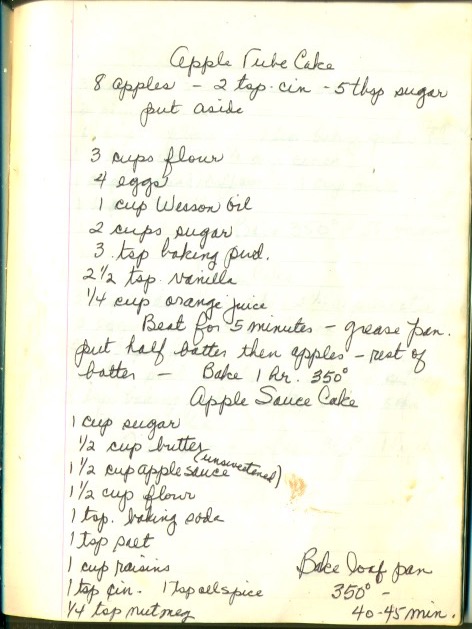 Apple Tube Cake
8 apples - 2 tsp. cin - 5 tbsp sugar
put aside
3 cups flour
4 eggs
1 cup Wesson Oil
2 cups sugar
3 tsp baking pwd.
2 1/2 tsp. vanilla
1/4 cup orange juice
Beat for 5 minutes - grease pan.
put half batter then apples - rest of
batter - Bake 1 hr. 350°
Apple Sauce Cake
1 cup sugar
1/2 cup butter
1 1/2 cup apple sauce (unsweetened)
1 1/2 cup flour
1 tsp. baking soda
1 tsp salt
1 cup raisins
1 tsp cin. 1 tsp allspice
1/4 tsp nutmeg
Bake loaf pan
350° -
40-45 min.